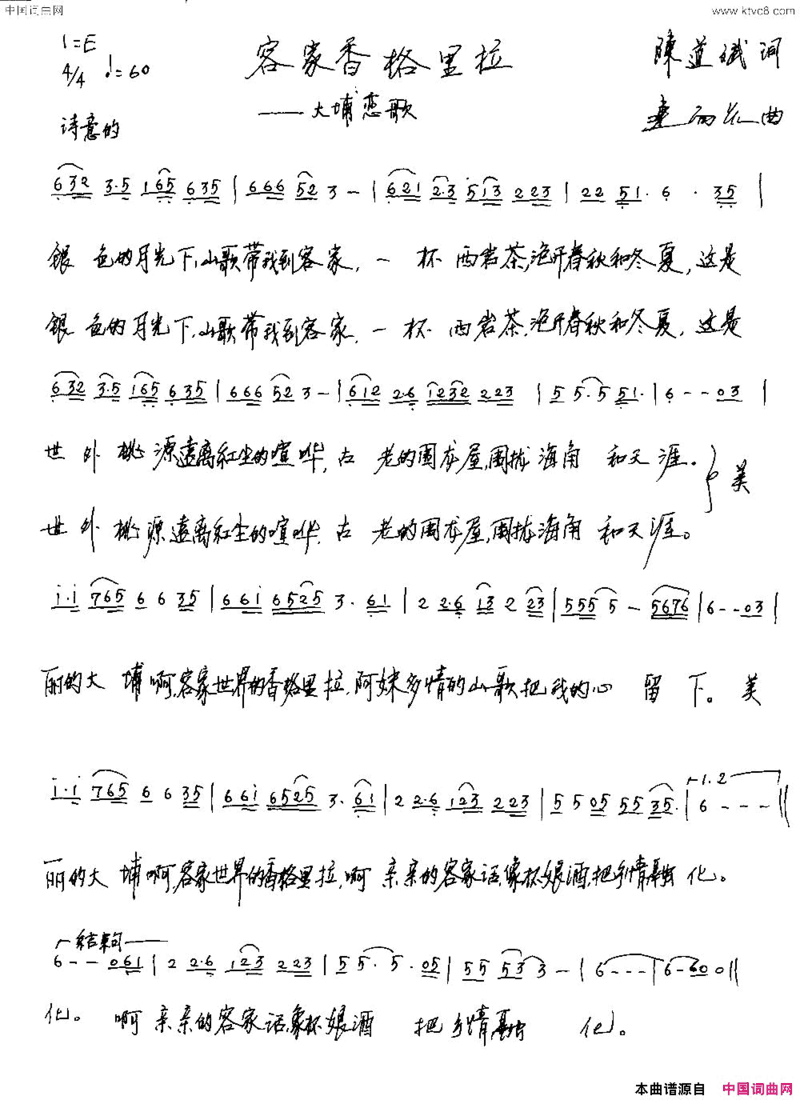 中国词曲网
www.ktvc8.com
1=E
4/4 ♩=60
客家香格里拉
——大埔恋歌
陳道斌 词
曲
诗意的
632 3·5 165 635 | 666 52 3 – | 621 2·3 513 223 | 22 51· 6 · 35 |
銀色的月光下,山歌带我到客家,一杯西岩茶,泡开春秋和冬夏,这是
銀色的月光下,山歌带我到客家,一杯西岩茶,泡开春秋和冬夏,这是
632 3·5 165 635 | 666 52 3 – | 612 2·6 1232 223 | 5 5·5 51· | 6 – – 03 |
世外桃源遠離紅尘的喧哗,古老的围龙屋,围拢海角和天涯。 美
世外桃源遠離紅尘的喧哗,古老的围龙屋,围拢海角和天涯。
i·i 765 6 6 35 | 66i 6525 3· 61 | 2 2·6 13 2 23 | 555 5 – 5676 | 6 – – 03 |
丽的大埔啊,客家世界的香格里拉,阿妹多情的山歌把我的心留下。美
i·i 765 6 6 35 | 66i 6525 3· 61 | 2 2·6 123 223 | 5 5 05 55 35· | 1.2 6 – – – ||
丽的大埔啊,客家世界的香格里拉,啊亲亲的客家话,像杯娘酒,把乡情融化。
结束句
6 – – 061 | 2 2·6 123 223 | 55· 5· 05 | 55 53 3 – | 6 – – – | 6 – 60 0 ||
化。 啊亲亲的客家话,像杯娘酒 把乡情融 化。
本曲谱源自 中国词曲网